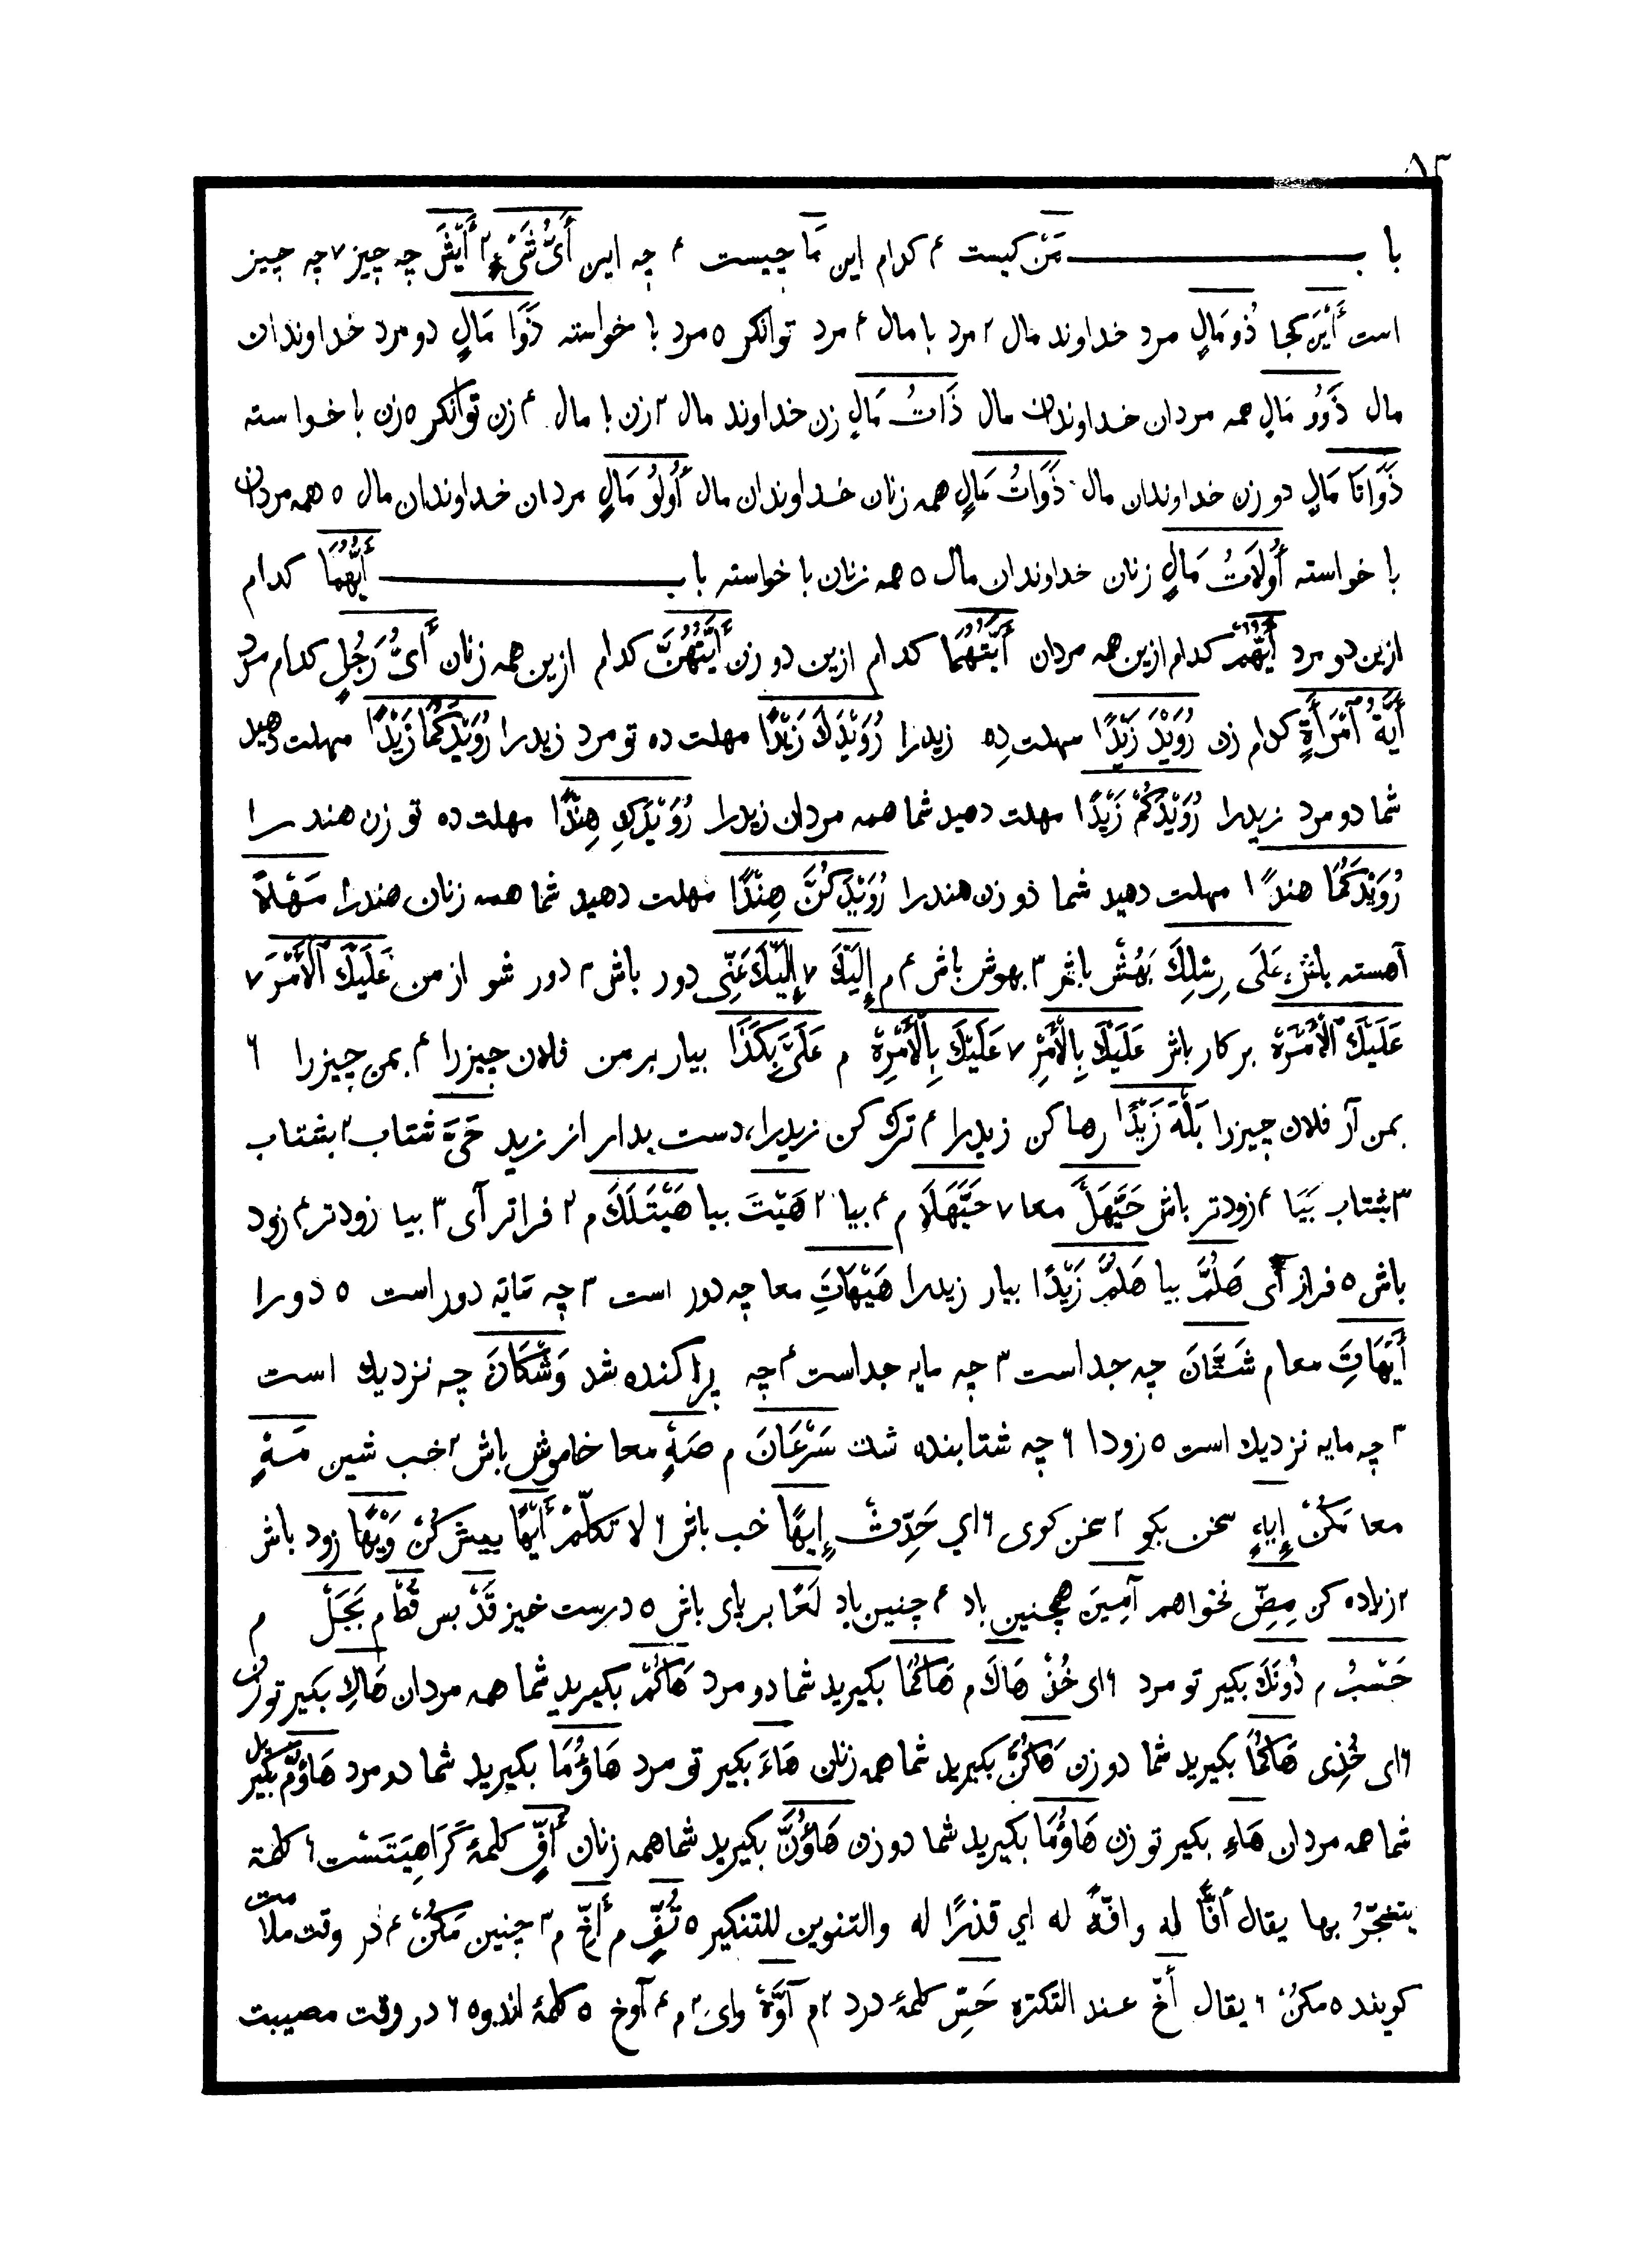 ۸۲
با ب مَنْ كيست ۴ كدام اين مَا چيست ۴ چه اين أَىُّ شَىْءٍ ۲ أَيْشَ چه چيز ۷ چه چيز
است أَيْنَ كجا ذُو مَالٍ مرد خداوند مال ۲ مرد با مال ۴ مرد توانكر ۵ مرد با خواسته ذَوَا مَالٍ دو مرد خداوندان
مال ذَوُو مَالٍ همه مردان خداوندان مال ذَاتُ مَالٍ زن خداوند مال ۲ زن با مال ۴ زن توانكر ۵ زن با خواسته
ذَوَاتَا مَالٍ دو زن خداوندان مال ذَوَاتُ مَالٍ همه زنان خداوندان مال أُولُو مَالٍ مردان خداوندان مال ۵ همه مردان
با خواسته أُولَاتُ مَالٍ زنان خداوندان مال ۵ همه زنان با خواسته با ب أَيُّهُمَا كدام
ازين دو مرد أَيُّهُمْ كدام ازين همه مردان أَيَّتُهُمَا كدام ازين دو زن أَيَّتُهُنَّ كدام ازين همه زنان أَىُّ رَجُلٍ كدام مرد
أَيَّةُ ٱمْرَأَةٍ كدام زن رُوَيْدَ زَيْدًا مهلت دِه زيدرا رُوَيْدَكَ زَيْدًا مهلت ده تو مرد زيدرا رُوَيْدَكُمَا زَيْدًا مهلت دهيد
شما دو مرد زيدرا رُوَيْدَكُمْ زَيْدًا مهلت دهيد شما همه مردان زيدرا رُوَيْدَكِ هِنْدًا مهلت ده تو زن هند را
رُوَيْدَكُمَا هندًا مهلت دهيد شما دو زن هندرا رُوَيْدَكُنَّ هِنْدًا مهلت دهيد شما همه زنان هندرا مَهْلاً
آهسته باش عَلَى رِسْلِكَ بَهُشْ باش ۳ بهوش باش ۴ م إِلَيْكَ ۷ إِلَيْكَ عَنِّى دور باش ۳ دور شو از من عَلَيْكَ ٱلْأَمْرَ ۷
عَلَيْكَ ٱلْأَمْرَةَ بر كار باش عَلَيْكَ بِالْأَمْرِ ۷ عَلَيْكَ بِالْأَمْرِةِ م عَلَىَّ بِكَذَا بيار بر من فلان چيزرا ۴ بمن چيزرا ۶
بمن آر فلان چيزرا بَلْهَ زَيْدًا رها كن زيدرا ۴ ترك كن زيدرا، دست بدار از زيد حَىَّ شتاب ۲ بشتاب
۳ شتاب بَيَا ۴ زودتر باش حَيَّهَلَ معا ۷ حَيَّهَلَا م ۴ بيا ۲ هَيْتَ بيا هَيْتَلَكَ م ۲ فراتر آى ۳ بيا زودتر ۴ زود
باش ۵ فراز آى هَلُمَّ بيا هَلُمَّ زَيْدًا بيار زيدرا هَيْهَاتَِ معا چه دور است ۳ چه مايه دور است ۵ دورا
أَيْهَاتَِ معا م شَتَّانَ چه جداست ۳ چه مايه جداست ۴ چه پراكنده شد وَشْكَانَ چه نزديك است
۳ چه مايه نزديك است ۵ زودا ۶ چه شتابنده شد سَرْعَانَ م صَهٍْ معا خاموش باش ۲ خب شين مَهٍْ
معا مَكُنْ إِيهٍ سخن بكو ۲ سخن كوى ۶ اي حَدِّثْ إِيهًا خب باش ۶ لا تكلّمْ أَيْهًا بيش كُنْ وَيْهًا زود باش
۲ زياده كن مِضِّ نخواهم آمِينَ همچنين باد ۴ چنين باد لَعًا بر پاى باش ۵ درست خيز قَدْ بس قَطْ م بَجَلْ م
حَسْبُ م دُونَكَ بكير تو مرد ۶ اى خُذْ هَاكَ م هَاكُمَا بكيريد شما دو مرد هَاكُمْ بكيريد شما همه مردان هَاكِ بكير تو زن
۶ اى خُذِى هَاكُمَا بكيريد شما دو زن هَاكُنَّ بكيريد شما همه زنان هَاءَ بكير تو مرد هَاؤُمَا بكيريد شما دو مرد هَاؤُمُ بكيريد
شما همه مردان هَاءِ بكير تو زن هَاؤُمَا بكيريد شما دو زن هَاؤُنَّ بكيريد شما همه زنان أُفٍّ كلمهٔ كَرَاهِيَتَسْت ۶ كلمة
يتضجّرُ بها يقال أفًّا له وافّةً له اي قذرًا له والتنوين للتنكير ۵ تُفٍّ م أَخِّ م ۳ چنين مَكُنْ ۴ در وقت ملالت
كويند ۵ مكنْ ۶ يقال أخّ عند التكرّه حَسِّ كلمهٔ درد ۲ م آوَّهْ واىَ ۲ م ۴ آوخ ۵ كلمهٔ اندوه ۶ در وقت مصيبت